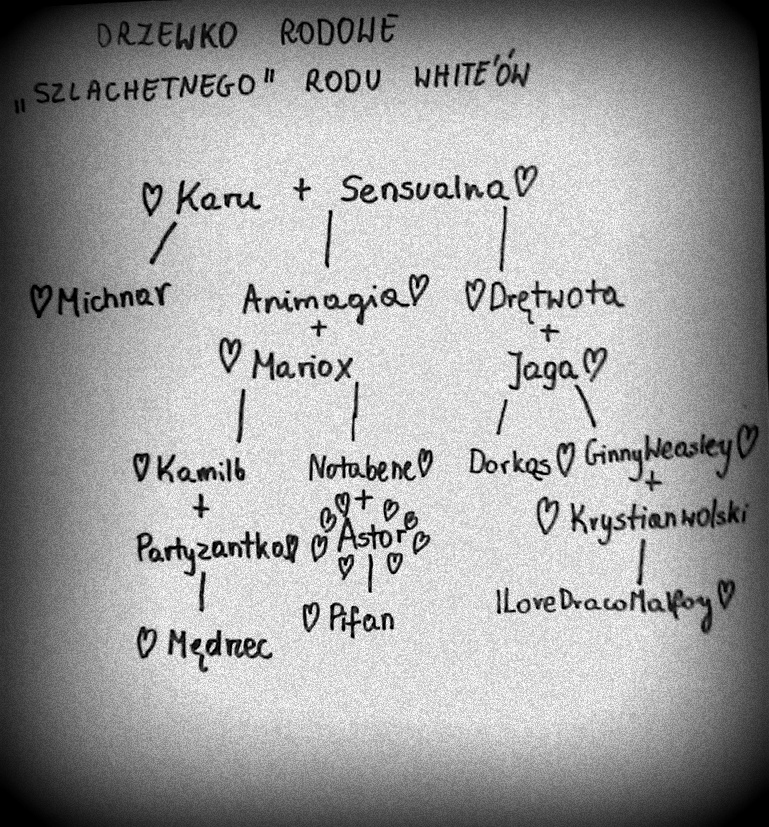 DRZEWKO RODOWE
„SZLACHETNEGO" RODU WHITE'ÓW
♡ Karu + Sensualna ♡
♡ Michnar Animagia ♡ ♡ Drętwota
+ +
♡ Mariox Jaga ♡
♡ Kamilb Notabene ♡ Dorkąs ♡ GinnyWeasley ♡
+ + +
Partyzantka ♡ ♡ Astor ♡ ♡ Krystianwolski
♡ Mędrzec ♡ Pifan ILoveDracoMalfoy ♡